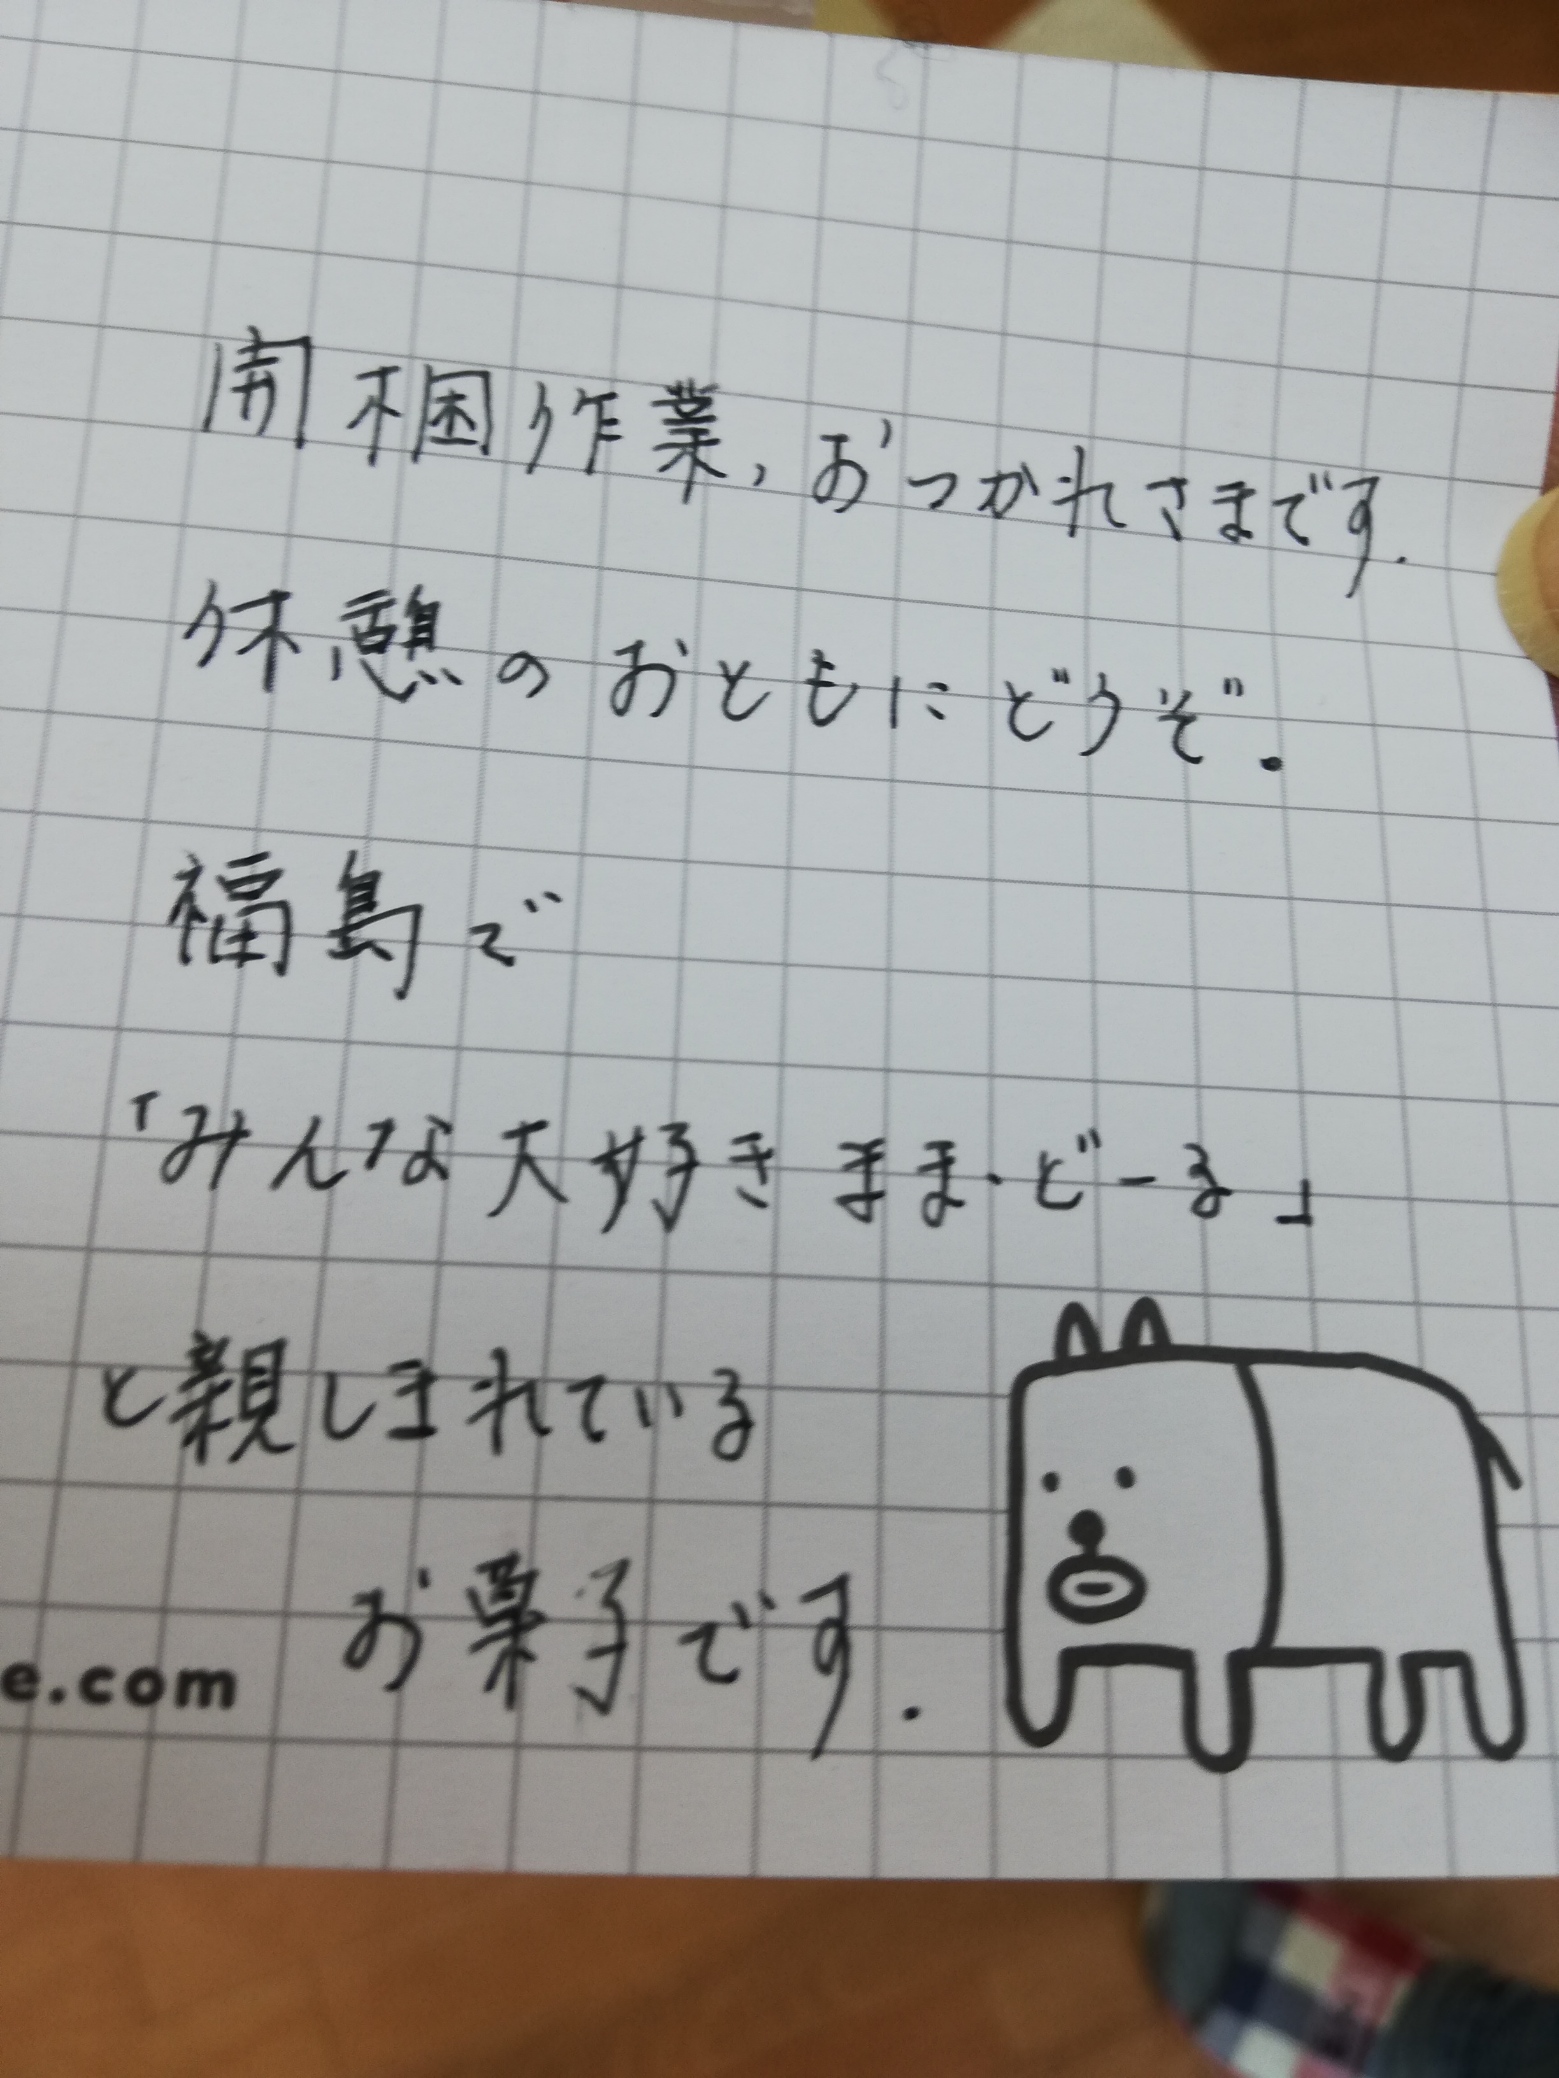 開梱作業、おつかれさまです.
休憩のおともにどうぞ.
福島で
「みんな大好きまま・どーる」
と親しまれている
お菓子です.
e.com